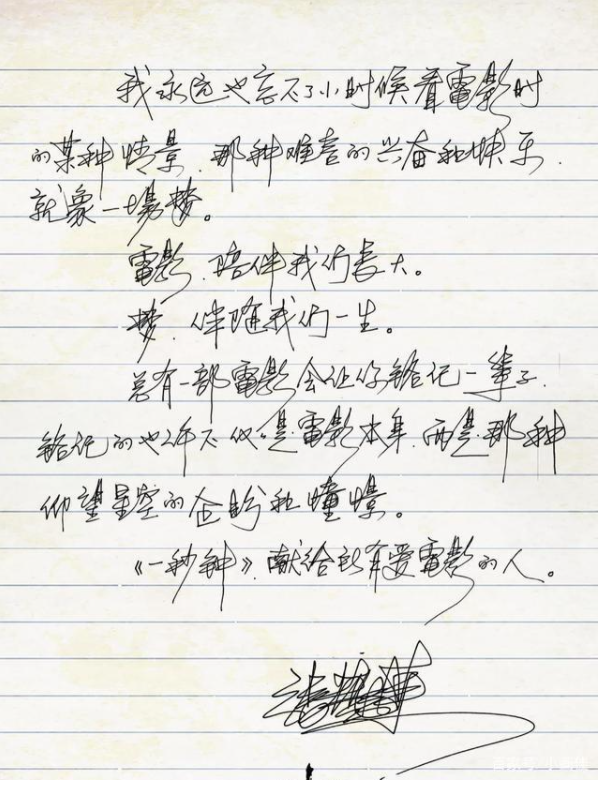 我永远也忘不了小时候看電影时
的某种情景.那种难言的兴奋和快乐.
就象一場梦。
電影.陪伴我们長大。
梦.伴随我们一生。
总有一部電影会让你銘记一辈子.
銘记的也许不仅是電影本身.而是那种
仰望星空的企盼和憧憬。
《一秒钟》.献给所有爱電影的人。